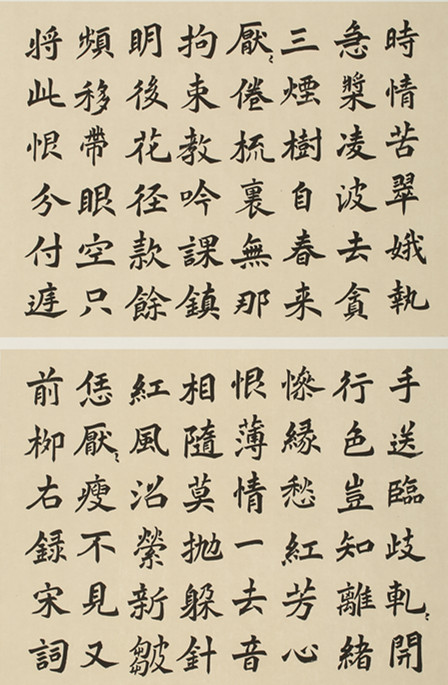 時情苦翠娥執
急槳凌波去貪
三煙樹自春来
厭〻倦梳裏無那
拘束教吟課鎮
明後花径款餘
頻移帶眼空只
将此恨分付庭
手送臨歧軋〻開
行色豈知離緒
慘緣愁紅芳心
恨薄情一去音
相隨莫抛躲針
紅風沼縈新皺
恁厭〻瘦不見又
前柳右録宋詞